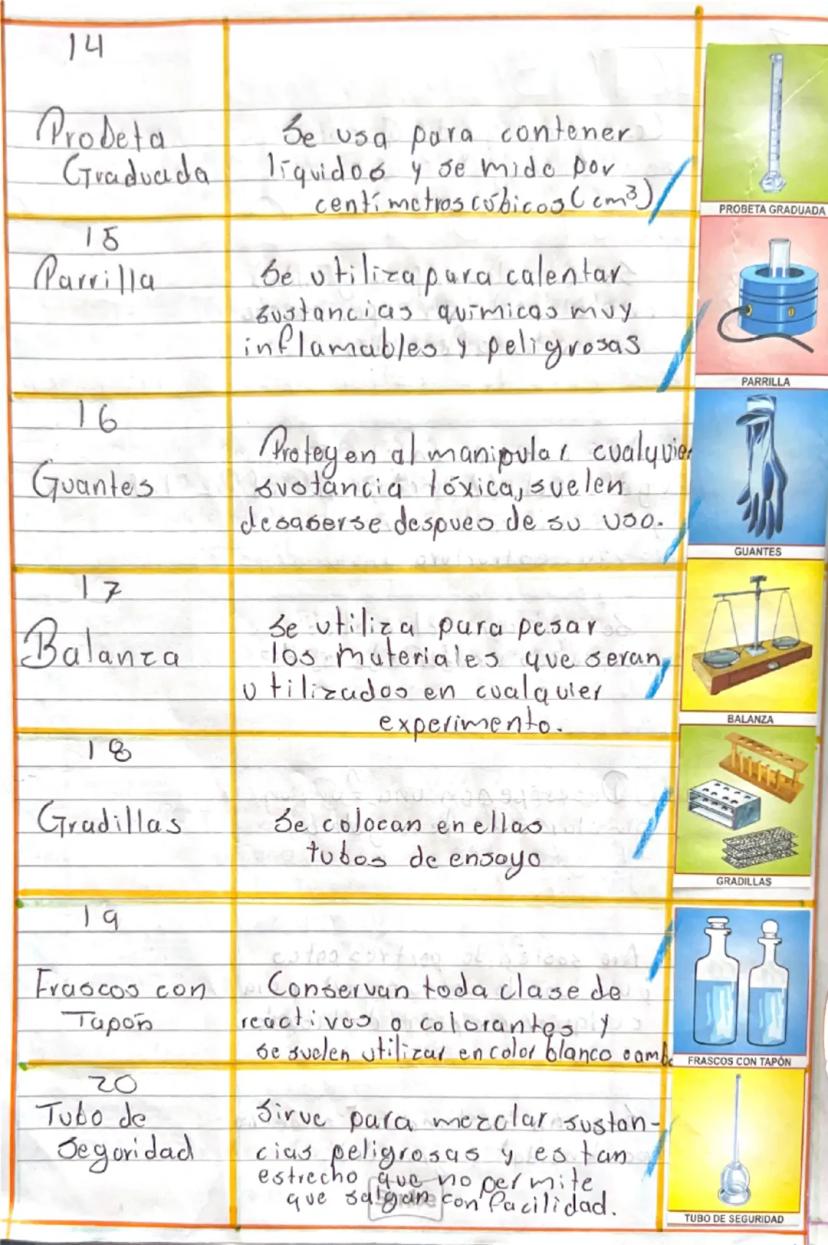 14
Probeta
Graduada
Se usa para contener
líquidos y se mide por
centímetros cúbicos (cm³)
PROBETA GRADUADA
15
Parrilla
Se utiliza para calentar
sustancias químicas muy
inflamables y peligrosas
PARRILLA
16
Guantes
Protegen al manipular cualquier
sustancia tóxica, suelen
desaserse despues de su uso.
GUANTES
17
Balanza
Se utiliza para pesar
los materiales que seran
utilizados en cualquier
experimento.
BALANZA
18
Gradillas
Se colocan en ellas
tubos de ensayo
GRADILLAS
19
Frascos con
Tapón
Conservan toda clase de
reactivos o colorantes y
se suelen utilizar en color blanco o amb
FRASCOS CON TAPÓN
20
Tubo de
Seguridad
Sirve para mezclar sustan-
cias peligrosas y es tan
estrecho que no permite
que salgan con facilidad.
TUBO DE SEGURIDAD